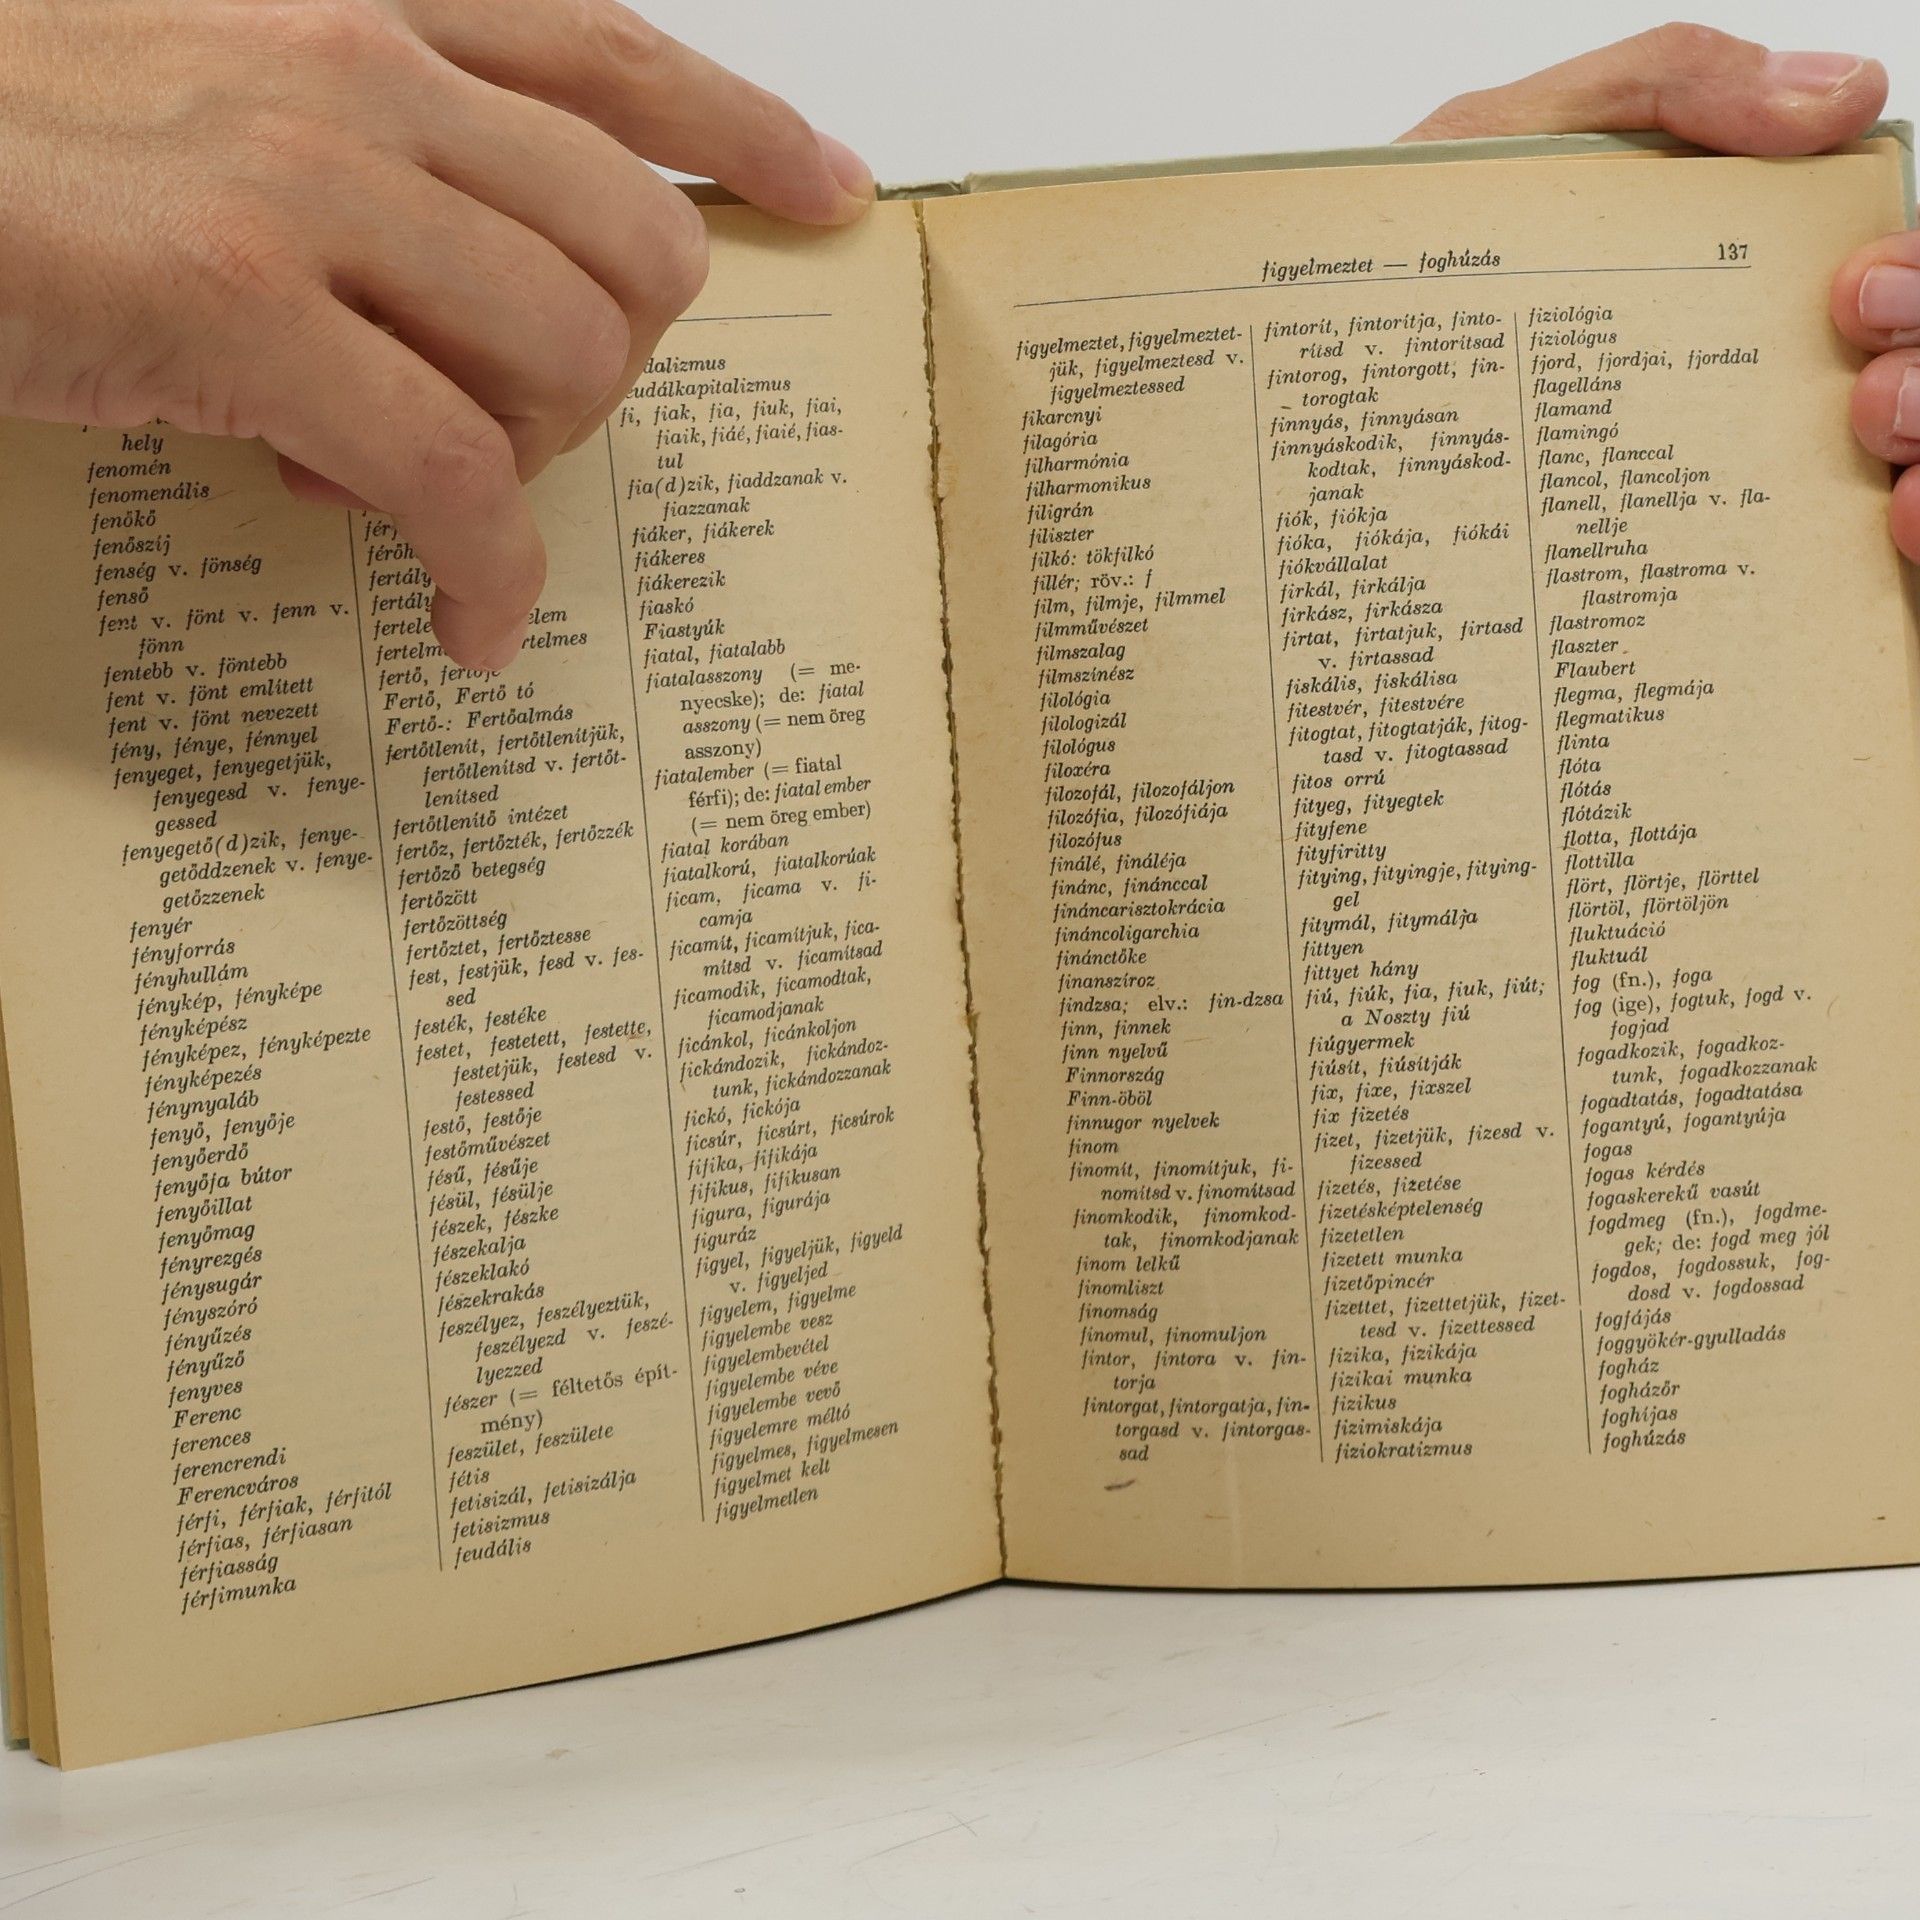 hely
fenomén
fenomenális
fenőkő
fenőszíj
fenség v. fönség
fenső
fent v. fönt v. fenn v.
fönn
fentebb v. föntebb
fent v. fönt említett
fent v. fönt nevezett
fény, fénye, fénnyel
fenyeget, fenyegetjük,
fenyegesd v. fenye-
gessed
fenyegető(d)zik, fenye-
getőddzenek v. fenye-
getőzzenek
fenyér
fényforrás
fényhullám
fénykép, fényképe
fényképész
fényképez, fényképezte
fényképezés
fénynyaláb
fenyő, fenyője
fenyőerdő
fenyőfa bútor
fenyőillat
fenyőmag
fényrezgés
fénysugár
fényszóró
fényűzés
fényűző
fenyves
Ferenc
ferences
ferencrendi
Ferencváros
férfi, férfiak, férfitól
férfias, férfiasan
férfiasság
férfimunka
fertő,
Fertő, Fertő tó
Fertő-: Fertőalmás
fertőtlenít, fertőtlenítjük,
fertőtlenítsd v. fertőt-
lenítsed
fertőtlenítő intézet
fertőz, fertőzték, fertőzzék
fertőző betegség
fertőzött
fertőzöttség
fertőztet, fertőztesse
fest, festjük, fesd v. fes-
sed
festék, festéke
festet, festetett, festette,
festetjük, festesd v.
festessed
festő, festője
festőművészet
fésű, fésűje
fésül, fésülje
fészek, fészke
fészekalja
fészeklakó
fészekrakás
feszélyez, feszélyeztük,
feszélyezd v. feszé-
lyezzed
fészer (= féltetős épít-
mény)
feszület, feszülete
fétis
fetisizál, fetisizálja
fetisizmus
feudális
dalizmus
eudálkapitalizmus
fi, fiak, fia, fiuk, fiai,
fiaik, fiáé, fiaié, fias-
tul
fia(d)zik, fiaddzanak v.
fiazzanak
fiáker, fiákerek
fiákeres
fiákerezik
fiaskó
Fiastyúk
fiatal, fiatalabb
fiatalasszony (= me-
nyecske); de: fiatal
asszony (= nem öreg
asszony)
fiatalember (= fiatal
férfi); de: fiatal ember
(= nem öreg ember)
fiatal korában
fiatalkorú, fiatalkorúak
ficam, ficama v. fi-
camja
ficamít, ficamítjuk, fica-
mítsd v. ficamítsad
ficamodik, ficamodtak,
ficamodjanak
ficánkol, ficánkoljon
fickándozik, fickándoz-
tunk, fickándozzanak
fickó, fickója
ficsúr, ficsúrt, ficsúrok
fifika, fifikája
fifikus, fifikusan
figura, figurája
figuráz
figyel, figyeljük, figyeld
v. figyeljed
figyelem, figyelme
figyelembe vesz
figyelembevétel
figyelembe véve
figyelembe vevő
figyelemre méltó
figyelmes, figyelmesen
figyelmet kelt
figyelmetlen
figyelmeztet — foghúzás 137
figyelmeztet, figyelmeztet-
jük, figyelmeztesd v.
figyelmeztessed
fikarcnyi
filagória
filharmónia
filharmonikus
filigrán
filiszter
filkó: tökfilkó
fillér; röv.: f
film, filmje, filmmel
filmművészet
filmszalag
filmszínész
filológia
filologizál
filológus
filoxéra
filozofál, filozofáljon
filozófia, filozófiája
filozófus
finálé, fináléja
finánc, finánccal
fináncarisztokrácia
fináncoligarchia
finánctőke
finanszíroz
findzsa; elv.: fin-dzsa
finn, finnek
finn nyelvű
Finnország
Finn-öböl
finnugor nyelvek
finom
finomít, finomítjuk, fi-
nomítsd v. finomítsad
finomkodik, finomkod-
tak, finomkodjanak
finom lelkű
finomliszt
finomság
finomul, finomuljon
fintor, fintora v. fin-
torja
fintorgat, fintorgatja, fin-
torgasd v. fintorgas-
sad
fintorít, fintorítja, finto-
rítsd v. fintorítsad
fintorog, fintorgott, fin-
torogtak
finnyás, finnyásan
finnyáskodik, finnyás-
kodtak, finnyáskod-
janak
fiók, fiókja
fióka, fiókája, fiókái
fiókvállalat
firkál, firkálja
firkász, firkásza
firtat, firtatjuk, firtasd
v. firtassad
fiskális, fiskálisa
fitestvér, fitestvére
fitogtat, fitogtatják, fitog-
tasd v. fitogtassad
fitos orrú
fityeg, fityegtek
fityfene
fityfiritty
fitying, fityingje, fitying-
gel
fitymál, fitymálja
fittyen
fittyet hány
fiú, fiúk, fia, fiuk, fiút;
a Noszty fiú
fiúgyermek
fiúsít, fiúsítják
fix, fixe, fixszel
fix fizetés
fizet, fizetjük, fizesd v.
fizessed
fizetés, fizetése
fizetésképtelenség
fizetetlen
fizetett munka
fizetőpincér
fizettet, fizettetjük, fizet-
tesd v. fizettessed
fizika, fizikája
fizikai munka
fizikus
fizimiskája
fiziokratizmus
fiziológia
fiziológus
fjord, fjordjai, fjorddal
flagelláns
flamand
flamingó
flanc, flanccal
flancol, flancoljon
flanell, flanellja v. fla-
nellje
flanellruha
flastrom, flastroma v.
flastromja
flastromoz
flaszter
Flaubert
flegma, flegmája
flegmatikus
flinta
flóta
flótás
flótázik
flotta, flottája
flottilla
flört, flörtje, flörttel
flörtöl, flörtöljön
fluktuáció
fluktuál
fog (fn.), foga
fog (ige), fogtuk, fogd v.
fogjad
fogadkozik, fogadkoz-
tunk, fogadkozzanak
fogadtatás, fogadtatása
fogantyú, fogantyúja
fogas
fogas kérdés
fogaskerekű vasút
fogdmeg (fn.), fogdme-
gek; de: fogd meg jól
fogdos, fogdossuk, fog-
dosd v. fogdossad
fogfájás
foggyökér-gyulladás
fogház
fogházőr
foghíjas
foghúzás